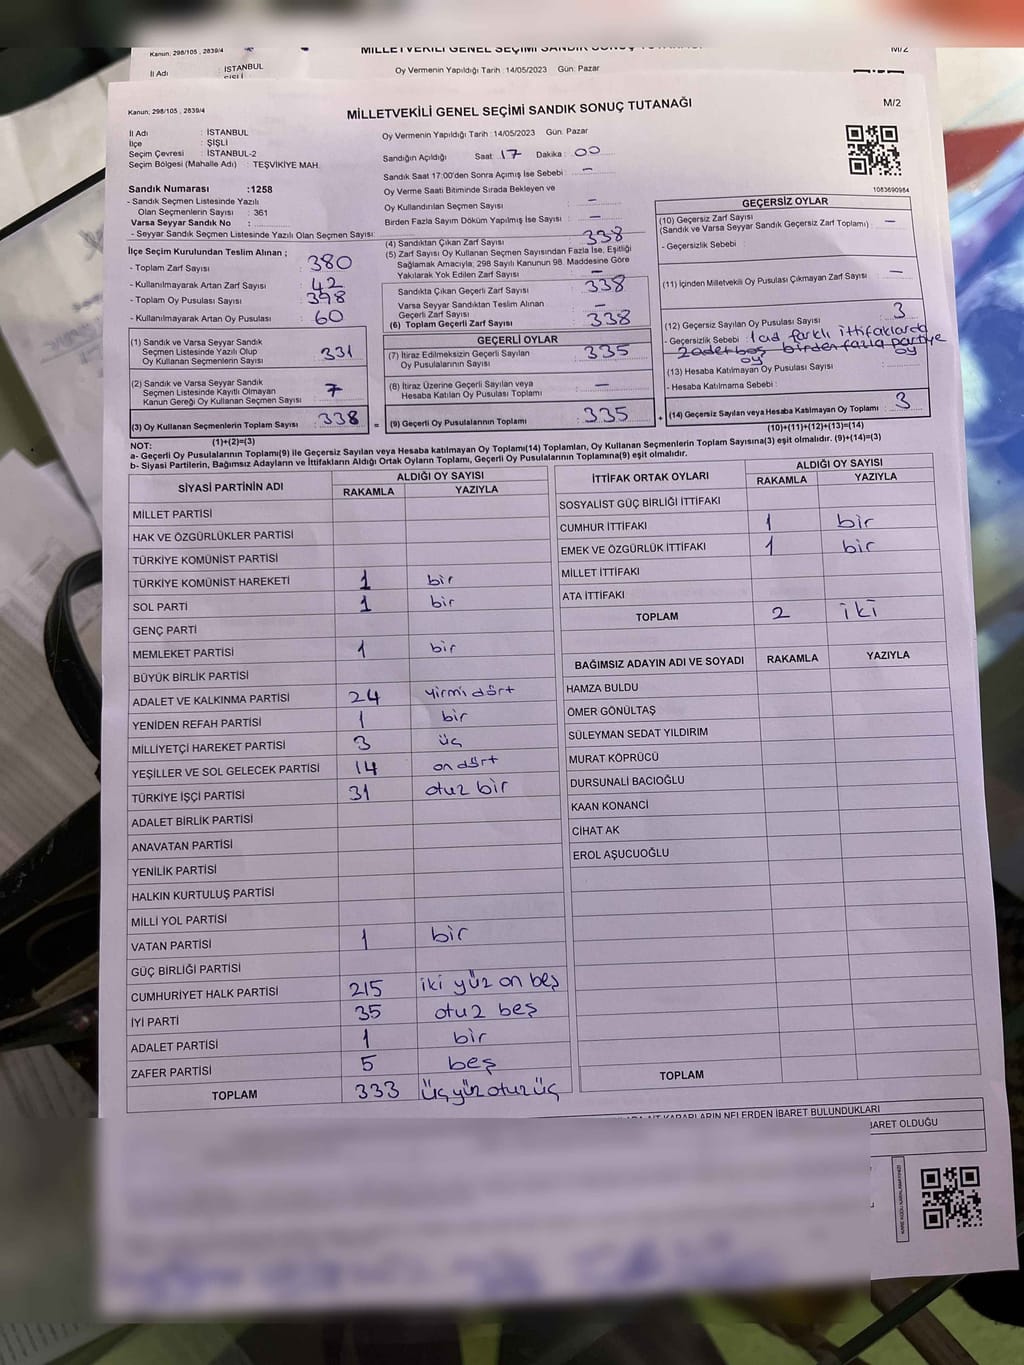 Kanun; 298/105 , 2839/4
MİLLETVEKİLİ GENEL SEÇİMİ SANDIK SONUÇ TUTANAĞI
M/2
İl Adı : İSTANBUL
Oy Vermenin Yapıldığı Tarih : 14/05/2023 Gün: Pazar
Kanun; 298/105 , 2839/4
MİLLETVEKİLİ GENEL SEÇİMİ SANDIK SONUÇ TUTANAĞI
M/2
İl Adı : İSTANBUL
İlçe : ŞİŞLİ
Seçim Çevresi : İSTANBUL-2
Seçim Bölgesi (Mahalle Adı) : TEŞVİKİYE MAH.
Oy Vermenin Yapıldığı Tarih : 14/05/2023 Gün: Pazar
Sandığın Açıldığı Saat : 17 Dakika : 00
Sandık Saat 17:00'den Sonra Açımış İse Sebebi : –
Oy Verme Saati Bitiminde Sırada Bekleyen ve
Oy Kullandırılan Seçmen Sayısı : –
Birden Fazla Sayım Döküm Yapılmış İse Sayısı : –
1083690984
Sandık Numarası :1258
- Sandık Seçmen Listesinde Yazılı
Olan Seçmenlerin Sayısı : 361
Varsa Seyyar Sandık No :
- Seyyar Sandık Seçmen Listesinde Yazılı Olan Seçmen Sayısı:
İlçe Seçim Kurulundan Teslim Alınan ;
- Toplam Zarf Sayısı : 380
- Kullanılmayarak Artan Zarf Sayısı : 42
- Toplam Oy Pusulası Sayısı : 398
- Kullanılmayarak Artan Oy Pusulası : 60
(1) Sandık ve Varsa Seyyar Sandık
Seçmen Listesinde Yazılı Olup
Oy Kullanan Seçmenlerin Sayısı : 331
(2) Sandık ve Varsa Seyyar Sandık
Seçmen Listesinde Kayıtlı Olmayan
Kanun Gereği Oy Kullanan Seçmen Sayısı : 7
(3) Oy Kullanan Seçmenlerin Toplam Sayısı : 338
(1)+(2)=(3)
(4) Sandıktan Çıkan Zarf Sayısı : 338
(5) Zarf Sayısı Oy Kullanan Seçmen Sayısından Fazla İse, Eşitliği
Sağlamak Amacıyla; 298 Sayılı Kanunun 98. Maddesine Göre
Yakılarak Yok Edilen Zarf Sayısı : –
Sandıkta Çıkan Geçerli Zarf Sayısı : 338
Varsa Seyyar Sandıktan Teslim Alınan
Geçerli Zarf Sayısı : –
(6) Toplam Geçerli Zarf Sayısı : 338
GEÇERLİ OYLAR
(7) İtiraz Edilmeksizin Geçerli Sayılan
Oy Pusulalarının Sayısı : 335
(8) İtiraz Üzerine Geçerli Sayılan veya
Hesaba Katılan Oy Pusulası Toplamı : –
= (9) Geçerli Oy Pusulalarının Toplamı : 335 +
GEÇERSİZ OYLAR
(10) Geçersiz Zarf Sayısı
(Sandık ve Varsa Seyyar Sandık Geçersiz Zarf Toplamı) : –
- Geçersizlik Sebebi :
(11) İçinden Milletvekili Oy Pusulası Çıkmayan Zarf Sayısı : –
(12) Geçersiz Sayılan Oy Pusulası Sayısı : 3
- Geçersizlik Sebebi : 1 ad farklı ittifaklarda
2 adet boş oy birden fazla partiye oy
(13) Hesaba Katılmayan Oy Pusulası Sayısı :
- Hesaba Katılmama Sebebi :
(14) Geçersiz Sayılan veya Hesaba Katılmayan Oy Toplamı : 3
(10)+(11)+(12)+(13)=(14)
NOT:
a- Geçerli Oy Pusulalarının Toplamı(9) ile Geçersiz Sayılan veya Hesaba katılmayan Oy Toplamı(14) Toplamları, Oy Kullanan Seçmenlerin Toplam Sayısına(3) eşit olmalıdır. (9)+(14)=(3)
b- Siyasi Partilerin, Bağımsız Adayların ve İttifakların Aldığı Ortak Oyların Toplamı, Geçerli Oy Pusulalarının Toplamına(9) eşit olmalıdır.
SİYASİ PARTİNİN ADI ALDIĞI OY SAYISI
RAKAMLA YAZIYLA
MİLLET PARTİSİ
HAK VE ÖZGÜRLÜKLER PARTİSİ
TÜRKİYE KOMÜNİST PARTİSİ
TÜRKİYE KOMÜNİST HAREKETİ 1 bir
SOL PARTİ 1 bir
GENÇ PARTİ
MEMLEKET PARTİSİ 1 bir
BÜYÜK BİRLİK PARTİSİ
ADALET VE KALKINMA PARTİSİ 24 yirmi dört
YENİDEN REFAH PARTİSİ 1 bir
MİLLİYETÇİ HAREKET PARTİSİ 3 üç
YEŞİLLER VE SOL GELECEK PARTİSİ 14 on dört
TÜRKİYE İŞÇİ PARTİSİ 31 otuz bir
ADALET BİRLİK PARTİSİ
ANAVATAN PARTİSİ
YENİLİK PARTİSİ
HALKIN KURTULUŞ PARTİSİ
MİLLİ YOL PARTİSİ
VATAN PARTİSİ 1 bir
GÜÇ BİRLİĞİ PARTİSİ
CUMHURİYET HALK PARTİSİ 215 iki yüz on beş
İYİ PARTİ 35 otuz beş
ADALET PARTİSİ 1 bir
ZAFER PARTİSİ 5 beş
TOPLAM 333 üçyüzotuzüç
İTTİFAK ORTAK OYLARI ALDIĞI OY SAYISI
RAKAMLA YAZIYLA
SOSYALİST GÜÇ BİRLİĞİ İTTİFAKI
CUMHUR İTTİFAKI 1 bir
EMEK VE ÖZGÜRLÜK İTTİFAKI 1 bir
MİLLET İTTİFAKI
ATA İTTİFAKI
TOPLAM 2 iki
BAĞIMSIZ ADAYIN ADI VE SOYADI RAKAMLA YAZIYLA
HAMZA BULDU
ÖMER GÖNÜLTAŞ
SÜLEYMAN SEDAT YILDIRIM
MURAT KÖPRÜCÜ
DURSUNALİ BACIOĞLU
KAAN KONANCİ
CİHAT AK
EROL AŞUCUOĞLU
TOPLAM
AİT KARARLARIN NELERDEN İBARET BULUNDUKLARI
İBARET OLDUĞU